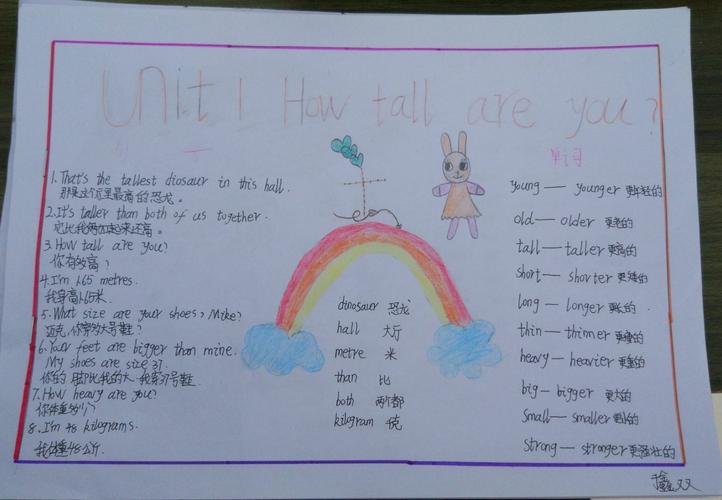 Unit 1 How tall are you?
1. That's the tallest diosaur in this hall.
那是这个厅里最高的恐龙。
2. It's taller than both of us together.
它比我俩加起来还高。
3. How tall are you?
你有多高?
4. I'm 1.65 metres.
我身高1.65米.
5. What size are your shoes, Mike?
迈克,你穿多大号鞋?
6. Your feet are bigger than mine.
My shoes are size 37.
你的脚比我的大.我穿37号鞋.
7. How heavy are you?
你体重多少?
8. I'm 48 kilograms.
我体重48公斤.
dinosaur 恐龙
hall 大厅
metre 米
than 比
both 两个都
kilogram
单词
young — younger 更年轻的
old — older 更老的
tall — taller 更高的
short — shorter 更矮的
long — longer 更长的
thin — thinner 更瘦的
heavy — heavier 更重的
big — bigger 更大的
small — smaller 更小的
strong — stronger 更强壮的
双